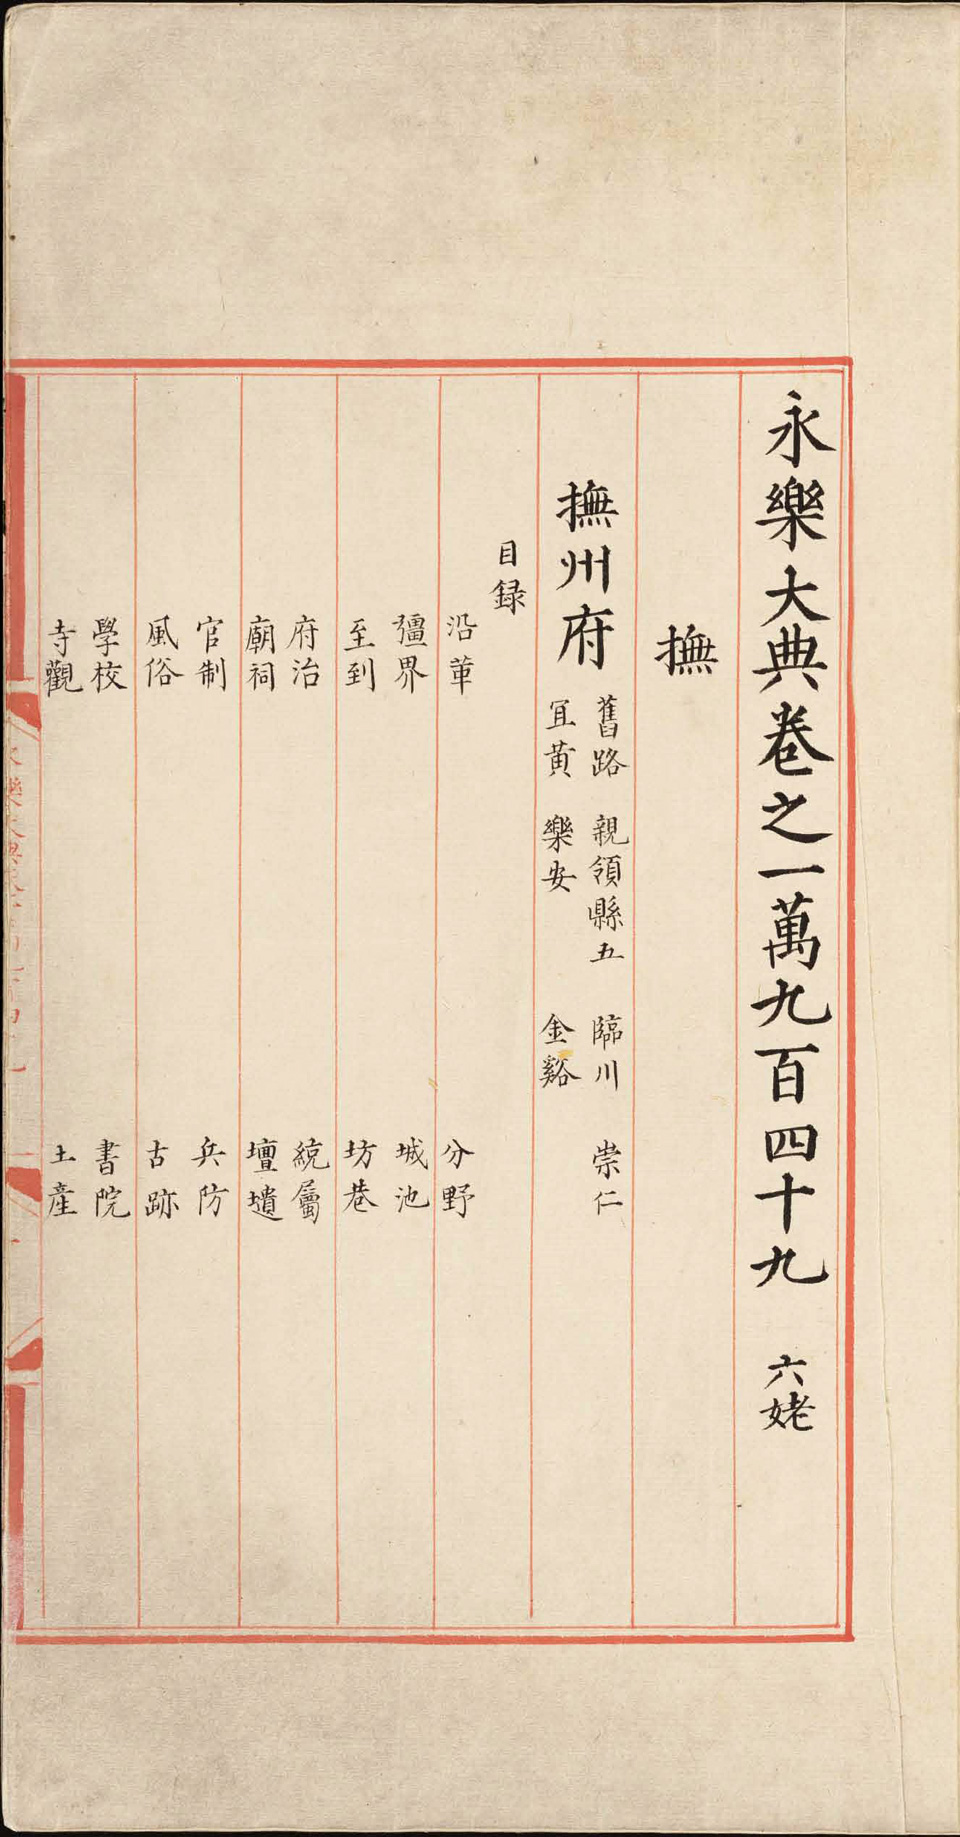 永樂大典卷之一萬九百四十九 六姥
撫
撫州府
舊路 親領縣五 臨川 崇仁
宜黃 樂安 金谿
目録
沿革 分野
彊界 城池
至到 坊巷
府治 統屬
廟祠 壇壝
官制 兵防
風俗 古跡
學校 書院
寺觀 土產